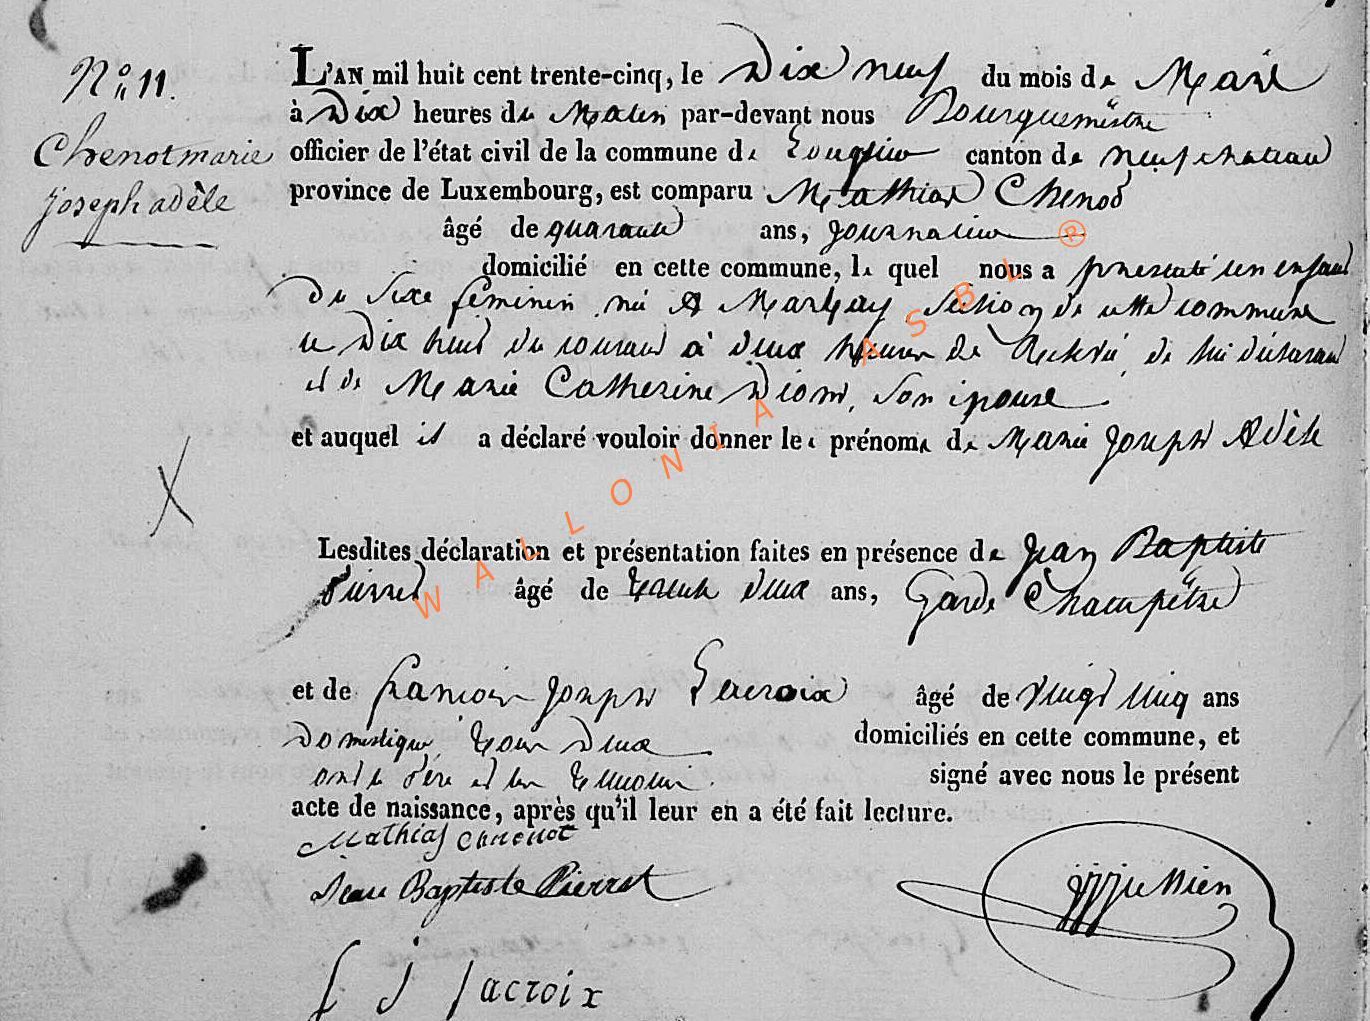 N° 11.
Chenot marie
joseph adèle
L'AN mil huit cent trente-cinq, le Dix neuf du mois de Mars
à Dix heures du Matin par-devant nous Bourguemestre
officier de l'état civil de la commune de Longlier canton de neufchateau
province de Luxembourg, est comparu Mathias Chenot
âgé de quarante ans, journalier
domicilié en cette commune, le quel nous a presenté un enfant
du sexe feminin né A Marbay section de cette commune
le Dix huit du courant à deux heures de relevé de lui déclarant
et de Marie Catherine Diom, son épouse
et auquel il a déclaré vouloir donner les prénoms de Marie Joseph Adèle
Lesdites déclaration et présentation faites en présence de Jean Baptiste
Pierret âgé de trente deux ans, Garde Champêtre
et de françois Joseph Lacroix âgé de vingt cinq ans
Domestique, tous deux domiciliés en cette commune, et
ont le père et les temoins signé avec nous le présent
acte de naissance, après qu'il leur en a été fait lecture.
Mathias Chenot
Jean Baptiste Pierret
f J Lacroix
WALLONIA ASBL ®